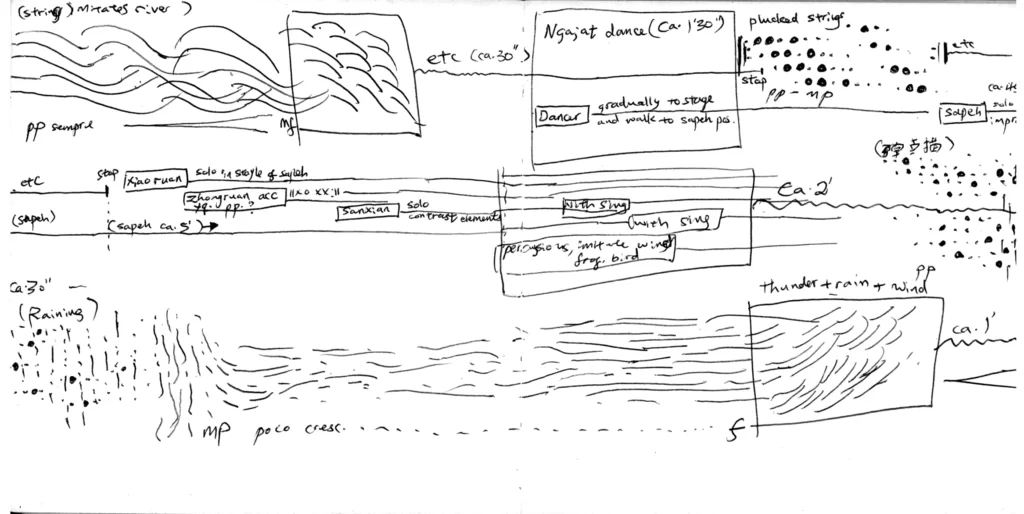 (string) mitates river)
pp sempre
mf
etc (ca.30")
Ngajat dance (ca. 1'30")
Dancer
gradually to stage
and walk to sapeh pos.
plucked strings
stop
pp - mp
etc
sapeh
solo
impr
etc
stop
xiaoruan
solo in style of sapeh
zhongruan, acc
pp.
(sapeh)
(sapeh ca. 5')
sanxian
solo
contrast elements
with sing
with sing
percussions, imitate wind
frog. bird
ca. 2'
点描)
ca.30"
(Raining)
mp poco cresc.
f
thunder + rain + wind
pp
ca. 1'